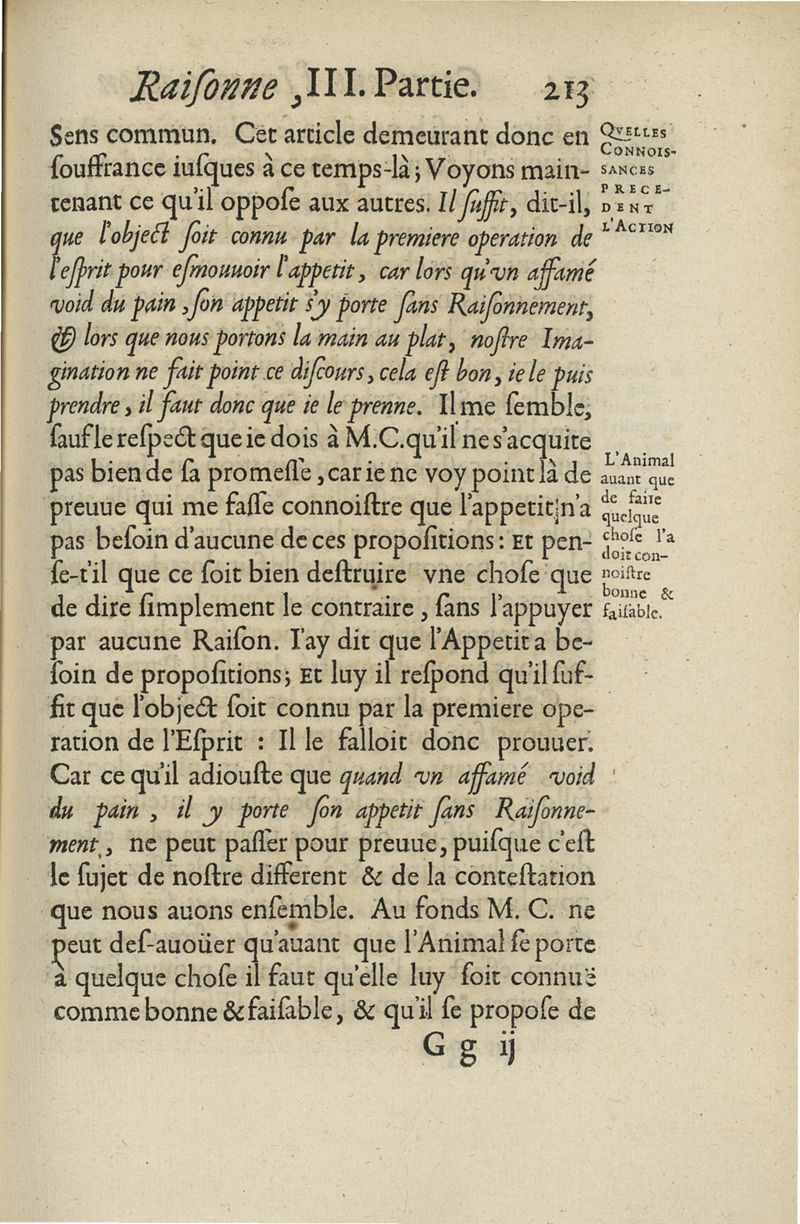 Raiſonne , III. Partie. 213
Sens commun. Cét article demeurant donc en
ſouffrance iuſques à ce temps-là ; Voyons main-
tenant ce qu'il oppoſe aux autres. Il ſuffit, dit-il,
que l'obiect ſoit connu par la premiere operation de
l'eſprit pour eſmouuoir l'appetit, car lors qu'vn affamé
void du pain , ſon appetit s'y porte ſans Raiſonnement,
& lors que nous portons la main au plat, noſtre Ima-
gination ne fait point ce diſcours, cela eſt bon, ie le puis
prendre, il faut donc que ie le prenne. Il me ſemble,
ſauf le reſpect que ie dois à M.C. qu'il ne s'acquite
pas bien de ſa promeſſe , car ie ne voy point là de
preuue qui me faſſe connoiſtre que l'appetit n'a
pas beſoin d'aucune de ces propoſitions : Et pen-
ſe-t'il que ce ſoit bien deſtruire vne choſe que
de dire ſimplement le contraire , ſans l'appuyer
par aucune Raiſon. I'ay dit que l'Appetit a be-
ſoin de propoſitions; Et luy il reſpond qu'il ſuf-
fit que l'object ſoit connu par la premiere ope-
ration de l'Eſprit : Il le falloit donc prouuer.
Car ce qu'il adiouſte que quand vn affamé void
du pain , il y porte ſon appetit ſans Raiſonne-
ment , ne peut paſſer pour preuue, puiſque c'eſt
le ſujet de noſtre different & de la conteſtation
que nous auons enſemble. Au fonds M. C. ne
peut deſ-auoüer qu'auant que l'Animal ſe porte
à quelque choſe il faut qu'elle luy ſoit connuë
comme bonne & faiſable, & qu'il ſe propoſe de
G g ij
QVELLES
CONNOIS-
SANCES
PRECE-
DENT
L'ACTION
L'Animal
auant que
de faire
quelque
choſe l'a
doit con-
noiſtre
bonne &
faiſable.